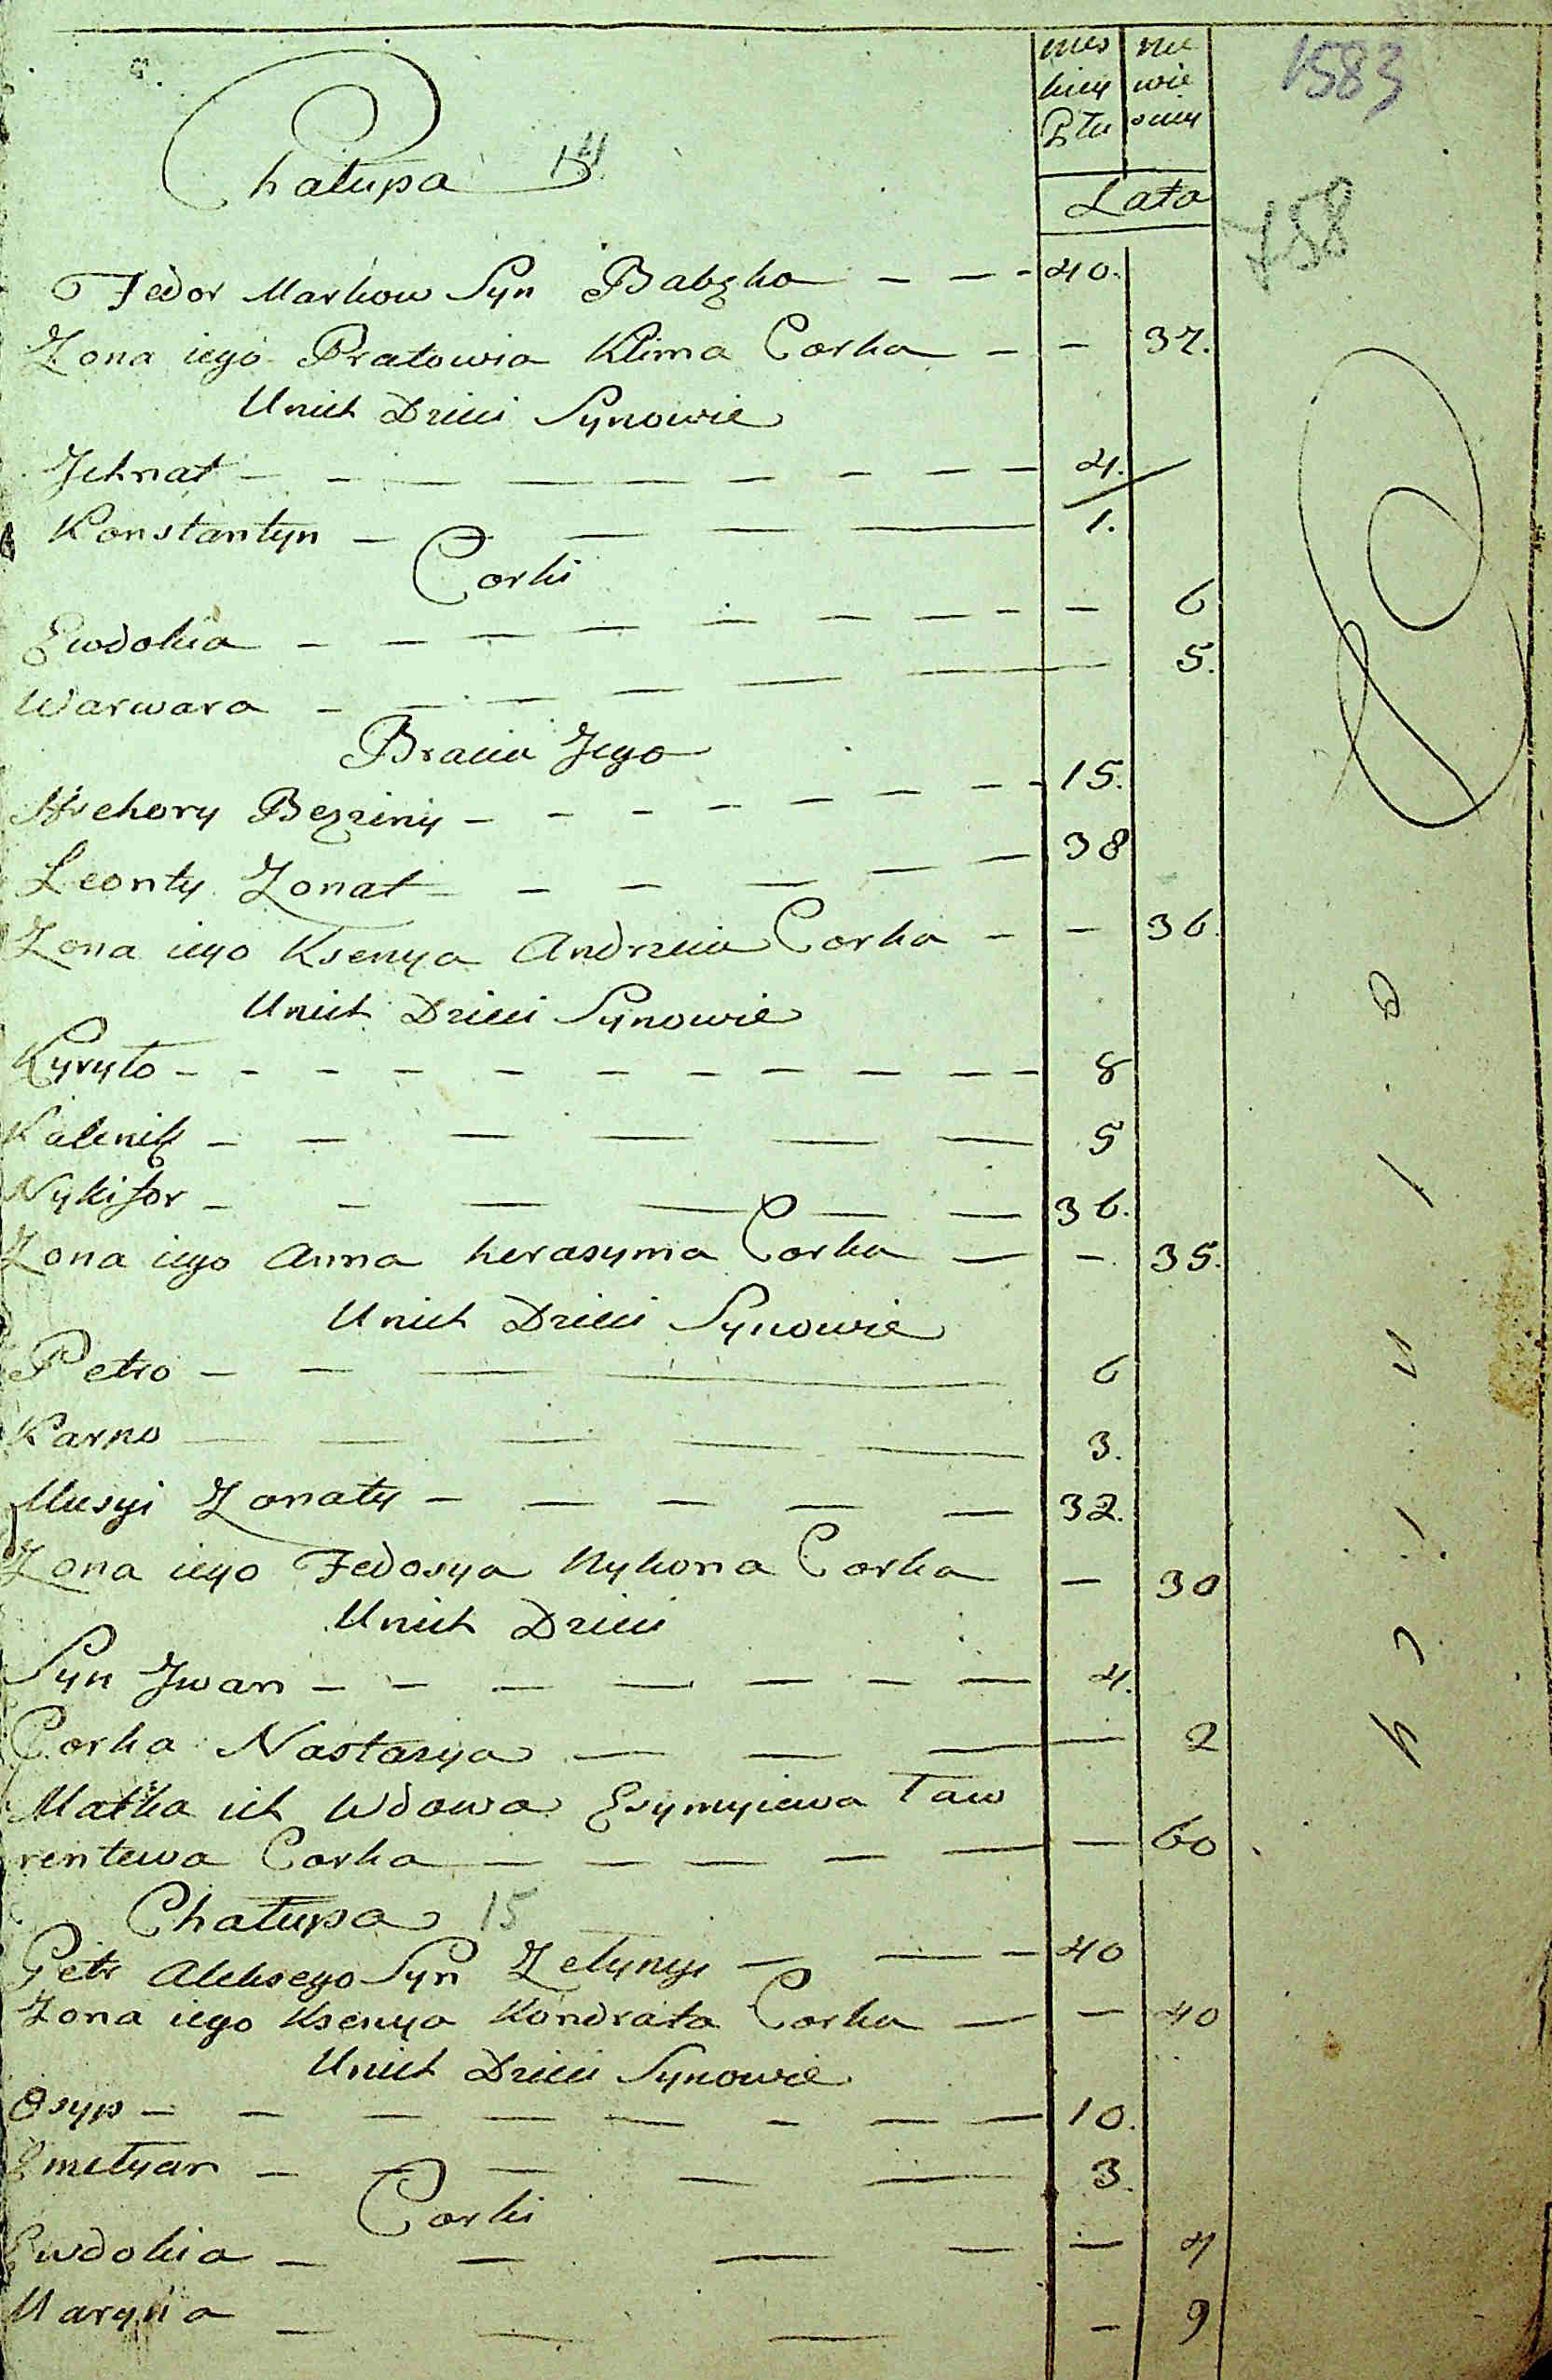 mes nie
kiey wie
Płu sciey
1583
Chałupa 14
Lata
758
Fedor Markow Syn Babzka 40.
Zona iego Prałowia Klima Corka 37.
U nich Dzieci Synowie
Jchnat 4.
Konstantyn 1.
Corki
Ewdokia 6
Warwara 5.
Bracia Jego
Hrehory Bezżiny 15.
Leonty Zonat 38
Zona iego Ksenya Andrzeia Corka 36.
U nich Dzieci Synowie
Kyryło 8
Kalenik 5
Nykifor 36.
Zona iego Anna herasyma Corka 35.
U nich Dzieci Synowie
Petro 6
Karpo 3.
Musyi Zonaty 32.
Zona iego Fedosya Nykona Corka 30
U nich Dzieci
Syn Jwan 4.
Corka Nastasya 2
Matka ich Wdowa Ław
rentewa Corka 60
Chałupa 15
Petr Alekseyo Syn Zełynyi 40
Zona iego Ksenya Kondrata Corka 40
U nich Dzieci Synowie
Osyp 10.
Emelyan 3.
Corki
Ewdokia 4
Maryna 9